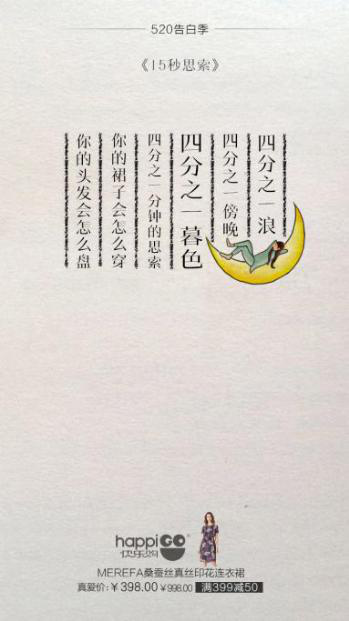 520告白季
《15秒思索》
四分之一浪
四分之一傍晚
四分之一暮色
四分之一分钟的思索
你的裙子会怎么穿
你的头发会怎么盘
happiGO
快乐购
MEREFA桑蚕丝真丝印花连衣裙
真爱价:￥398.00 ￥998.00 满399减50